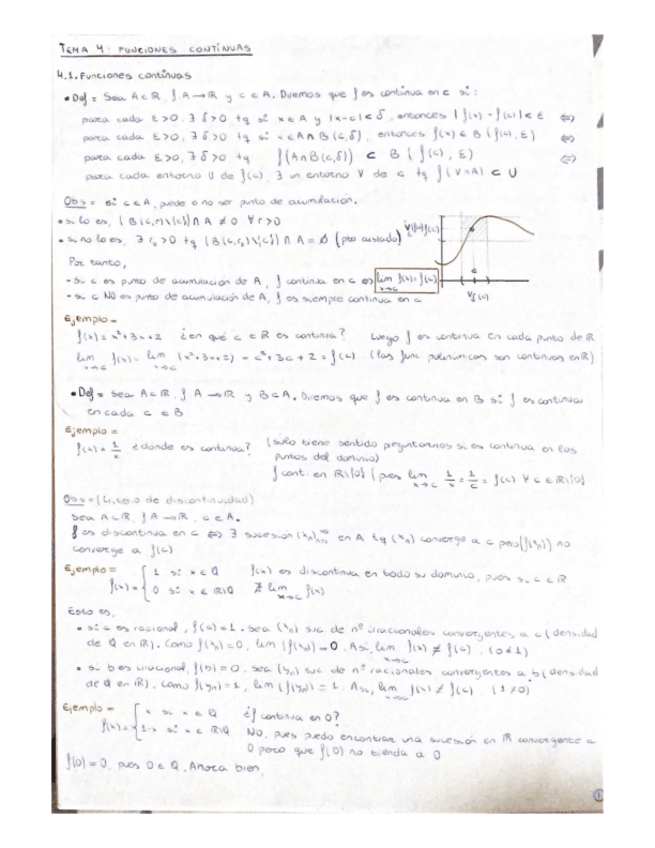 TEMA 4: FUNCIONES CONTÍNUAS
4.1. Funciones contínuas
• Def = Sea A⊂ℝ, f: A→ℝ y c∈A. Diremos que f es continua en c si:
para cada ε>0, ∃ δ>0 tq si x∈A y |x-c|<δ, entonces |f(x)-f(c)|<ε ⇔
para cada ε>0, ∃ δ>0 tq si x∈A∩B(c,δ), entonces f(x)∈B(f(c),ε) ⇔
para cada ε>0, ∃ δ>0 tq f(A∩B(c,δ)) ⊂ B(f(c),ε) ⇔
para cada entorno U de f(c), ∃ un entorno V de c tq f(V∩A) ⊂ U
Obs = si c∈A, puede o no ser punto de acumulación.
• si lo es, (B(c,r)\{c})∩A ≠ ∅ ∀r>0
• si no lo es, ∃ r₀>0 tq (B(c,r₀)\{c})∩A = ∅ (pto aislado)
Por tanto,
- si c es punto de acumulación de A, f continua en c ⇔ lim x→c f(x)=f(c)
- si c NO es punto de acumulación de A, f es siempre continua en c
c
Ejemplo =
f(x)=x²+3x+2 ¿en qué c∈ℝ es continua? Luego f es continua en cada punto de ℝ
lim x→c f(x) = lim x→c (x²+3x+2) = c²+3c+2 = f(c) (las func polinómicas son continuas en ℝ)
• Def = Sea A⊂ℝ, f: A→ℝ y B⊂A. Diremos que f es continua en B si f es continua
en cada c∈B
Ejemplo =
f(x)=1/x ¿dónde es continua? (sólo tiene sentido preguntarnos si es continua en los
puntos del dominio)
f cont. en ℝ\{0} (pues lim x→c 1/x = 1/c = f(c) ∀c∈ℝ\{0}
Obs = (Criterio de discontinuidad)
Sea A⊂ℝ, f: A→ℝ, c∈A.
f es discontinua en c ⇔ ∃ sucesión (xₙ)ₙ₌₁^∞ en A tq (xₙ) converge a c pero (f(xₙ)) no
converge a f(c)
Ejemplo =
f(x)= { 1 si x∈ℚ f(x) es discontinua en todo su dominio, pues si c∈ℝ
0 si x∈ℝ\ℚ ∄ lim x→c f(x)
Esto es,
• si c es racional, f(c)=1. Sea (xₙ) suc de nº irracionales convergentes a c (densidad
de ℚ en ℝ). Como f(xₙ)=0, lim (f(xₙ))=0. Así, lim x→c f(x) ≠ f(c) (0≠1)
• si b es irracional, f(b)=0. Sea (yₙ) suc de nº racionales convergentes a b (densidad
de ℚ en ℝ). Como f(yₙ)=1, lim (f(yₙ))=1. Así, lim f(x) ≠ f(c) (1≠0)
Ejemplo =
f(x)= { x si x∈ℚ ¿f continua en 0?
1-x si x∈ℝ\ℚ NO, pues puedo encontrar una sucesión en ℝ convergente a
0 pero que f(0) no tienda a 0
f(0)=0, pues 0∈ℚ. Ahora bien,
1